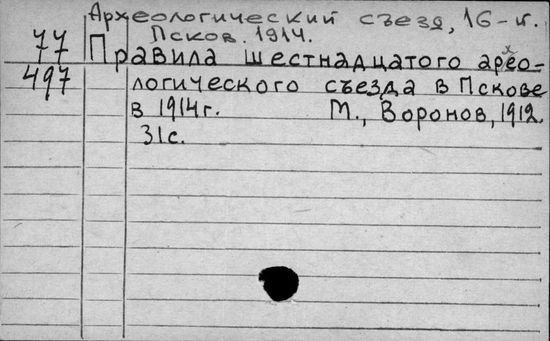 Археологический съезд, 16-й.
Псков. 1914.
77 Правила шестнадцатого архео-
497 логического съезда в Пскове
в 1914г. М., Воронов, 1912.
31с.